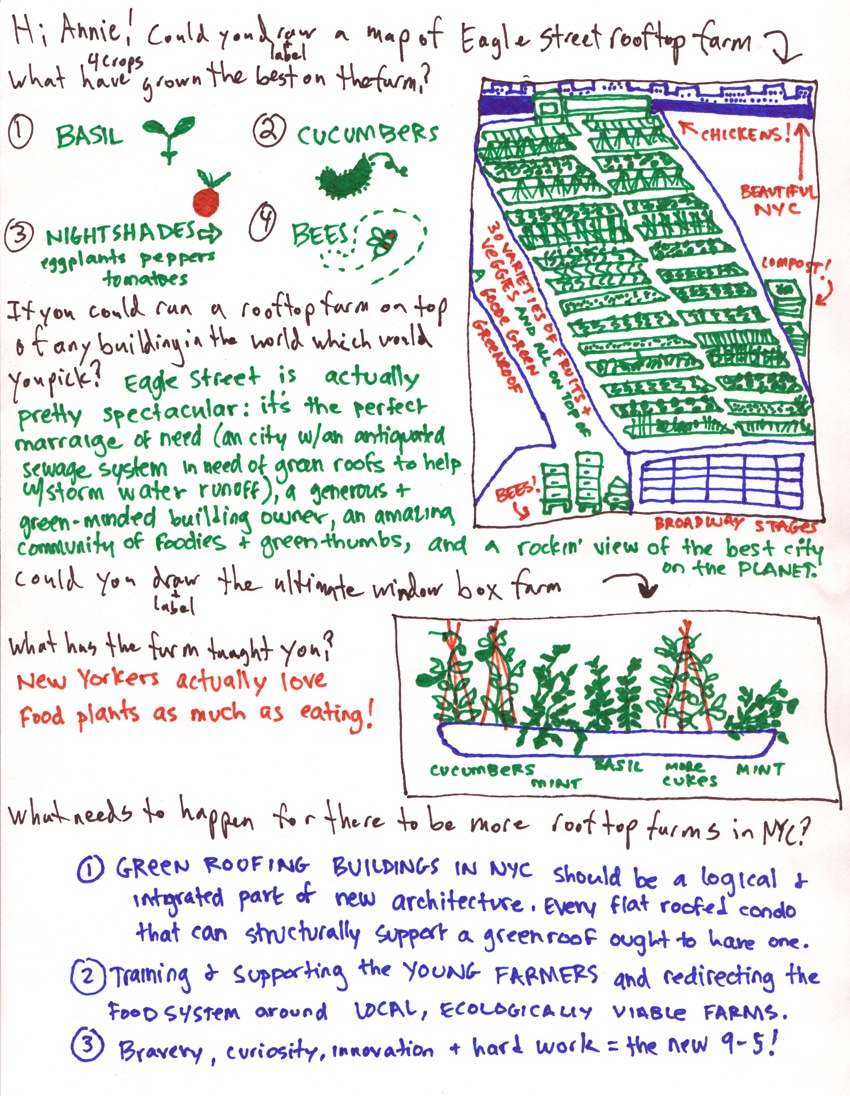 Hi Annie! Could you draw + label a map of Eagle Street rooftop farm
What 4 crops have grown the best on the farm?
① BASIL
② CUCUMBERS
③ NIGHTSHADES
eggplants peppers
tomatoes
④ BEES
CHICKENS!
BEAUTIFUL
NYC
COMPOST!
30 VARIETIES OF FRUITS +
VEGGIES AND ALL ON TOP OF
A 6000² GREEN
GREENROOF
BEES!
BROADWAY STAGES
If you could run a rooftop farm on top
of any building in the world which would
you pick? Eagle Street is actually
pretty spectacular: it's the perfect
marraige of need (an city w/an antiquated
sewage system in need of green roofs to help
w/storm water runoff), a generous +
green-minded building owner, an amazing
community of foodies + greenthumbs, and a rockin' view of the best city
on the PLANET.
Could you draw + label the ultimate window box farm
What has the farm taught you?
New Yorkers actually love
food plants as much as eating!
CUCUMBERS
MINT
BASIL
MORE
CUKES
MINT
What needs to happen for there to be more rooftop farms in NYC?
① GREEN ROOFING BUILDINGS IN NYC should be a logical &
intgrated part of new architecture. Every flat roofed condo
that can structurally support a greenroof ought to have one.
② Training & supporting the YOUNG FARMERS and redirecting the
FOOD SYSTEM around LOCAL, ECOLOGICALLY VIABLE FARMS.
③ Bravery, curiosity, innovation + hard work = the new 9-5!